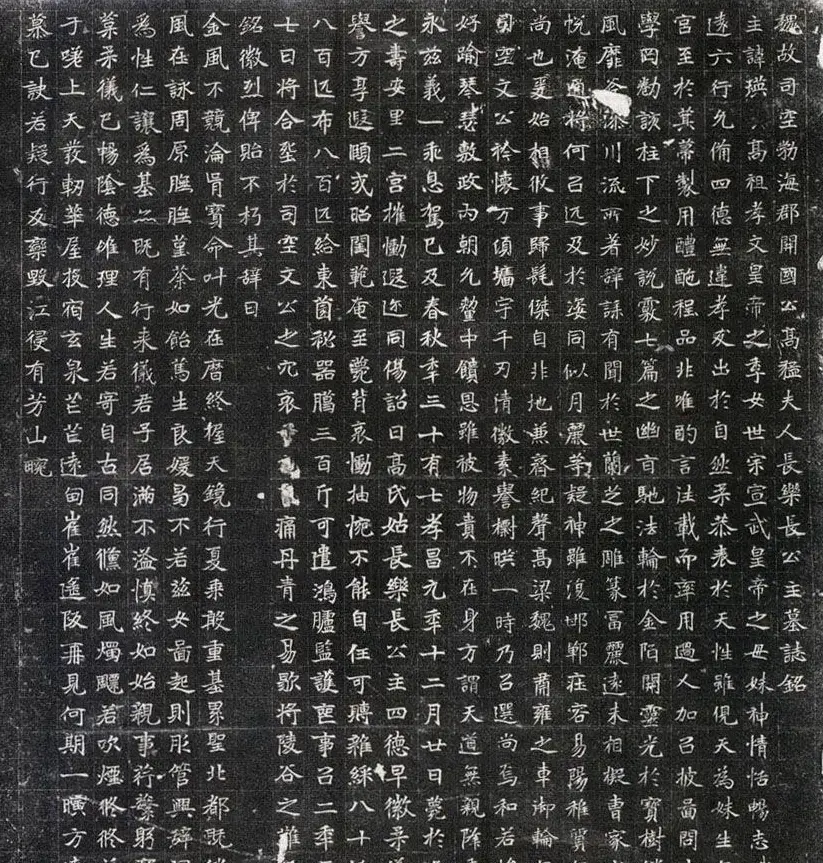 魏故司空勃海郡開國公高猛夫人長樂長公主墓誌銘
主諱瑛高祖孝文皇帝之季女世宗宣武皇帝之母妹神情恬暢志
遠六行允備四德無違孝友出於自然柔恭表於天性雖俔天為妹生
宮至於其幕製用醴酏程品非唯酌言往載而率用過人加以披啚問
學罔勌該柱下之妙說覈七篇之幽旨馳法輪於金陌開靈光於寶樹
風靡谷流川流所著辭誄有聞於世蘭芝之雕篆富麗遠未相擬曹家
悅淹通將何以迈及於姿同似月麗等疑神雖復邯鄲莊容易陽稚質
尚也爰始相攸事歸髦傑自非地兼齊紀聲高梁魏則肅雍之車御輪
司空文公衿懷万頃墻宇千刃清徽素譽標暎一時乃以選尚焉和若
好踰琴瑟敷政內朝允釐中饋恩雖被物貴不在身方謂天道無親
永茲義一乖息駕已及春秋年三十有七孝昌元年十二月廿日薨於
之壽安里二宮摧慟遐迩同傷詔曰高氏姑長樂長公主四德早徽柔
譽方享遐頤式昭閨範奄至薨背哀慟抽惋不能自任可賻雜綵八十
八百匹布八百匹給東園秘器臈三百斤可遣鴻臚監護喪事以二年
七日將合塟於司空文公之穴哀痛丹青之易歇將陵谷之難
銘徽烈俾貽不朽其辭曰
金風不競淪胥寶命叶光在曆終握天鏡行夏乘敢重基累聖北都既
風在詠周原膴膴堇荼如飴篤生良媛曷不若茲女啚起則彤管興辭
為性仁讓為基亦既有行來儀君子居滿不溢慎終如始親事荇蘩躬
葉柔儀已暢陰德唯理人生若寄自古同然儵如風燭飃若吹煙悠悠
于嗟上天發軔華屋投宿玄泉芒芒遠甸崔崔遙阪再見何期一曠方
慕已訣若疑行及藥毀江侵有芳山畹